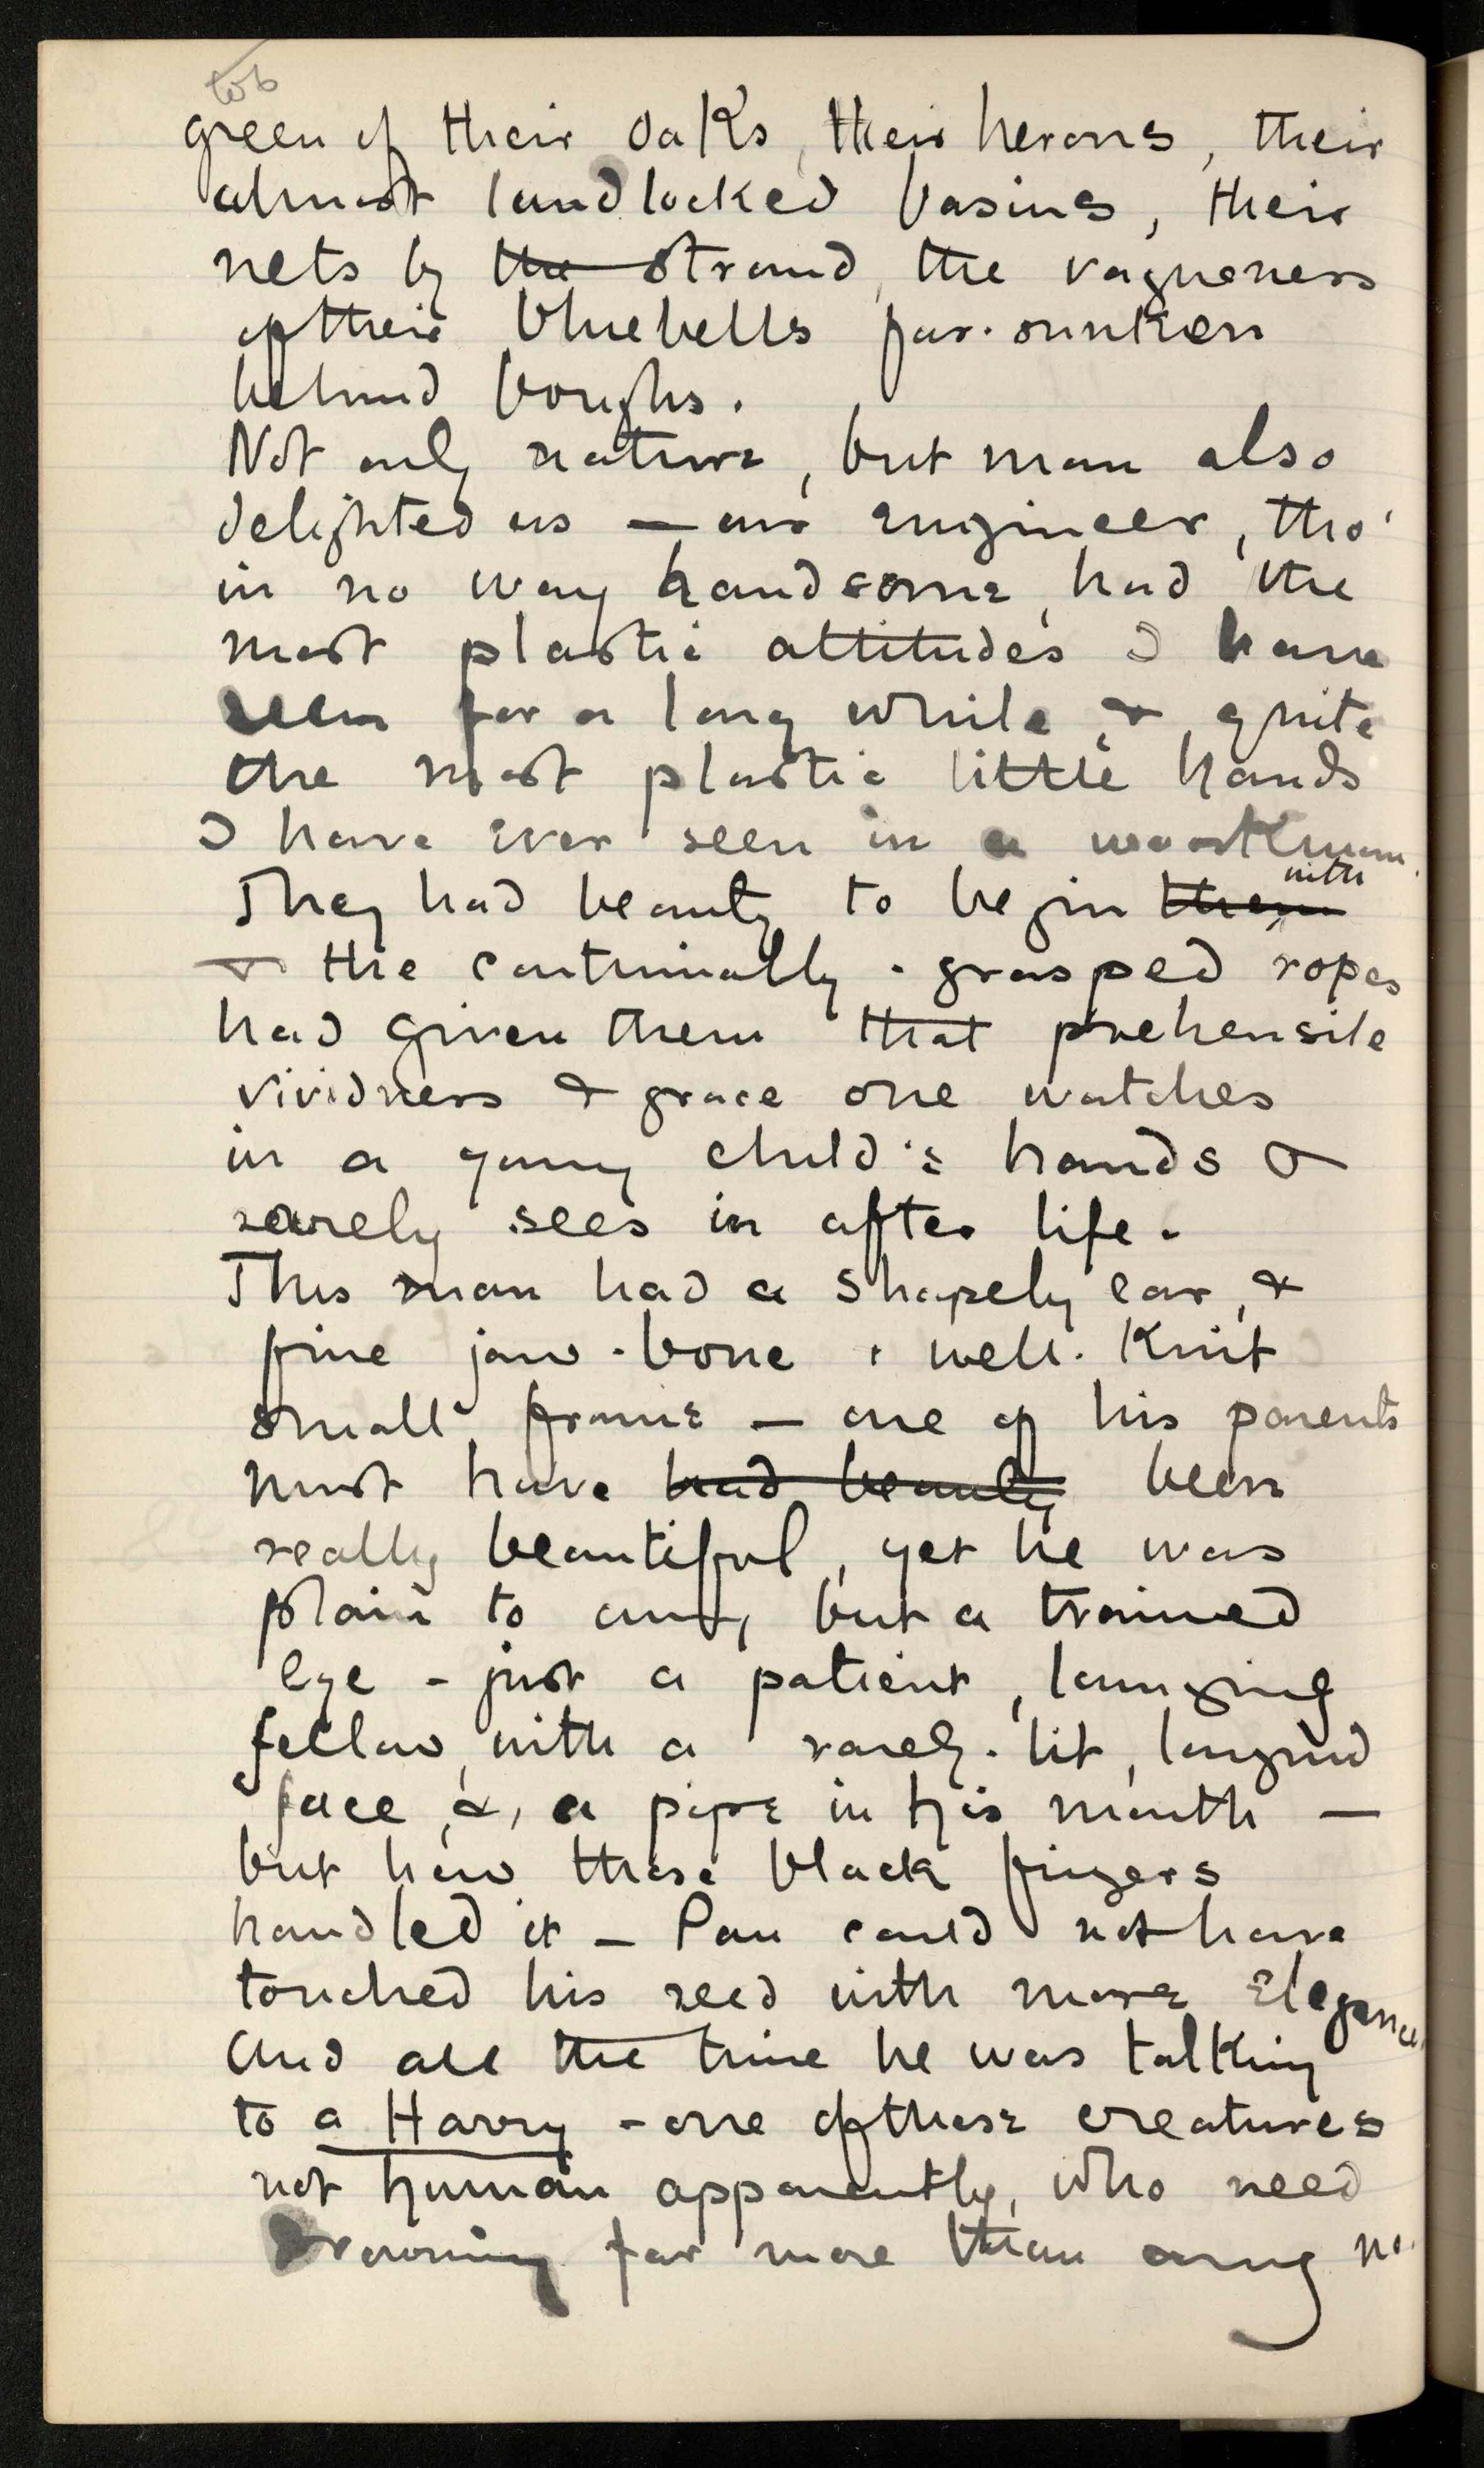 green of their oaks, their herons, their
almost landlocked basins, their
nets by the strand, the vagueness
of their bluebells far-sunken
behind boughs.
Not only nature, but man also
delighted us — our engineer, tho'
in no way handsome, had the
most plastic attitudes I have
seen for a long while, & quite
the most plastic little hands
I have ever seen in a workman.
with
They had beauty to begin them
& the continually-grasped ropes
had given them that prehensile
vividness & grace one watches
in a young child's hands &
rarely sees in after life.
This man had a shapely ear, &
fine jaw-bone & well-Knit
small frame — one of his parents
must have had beauty been
really beautiful, yet he was
plain to any but a trained
eye - just a patient, lounging
fellow, with a rarely-lit, languid
face, &, a pipe in his mouth —
but how those black fingers
handled it — Pan could not have
touched his reed with more elegance,
And all the time he was talking
to a Harry - one of those creatures
not human apparently, who need
drowning far more than any